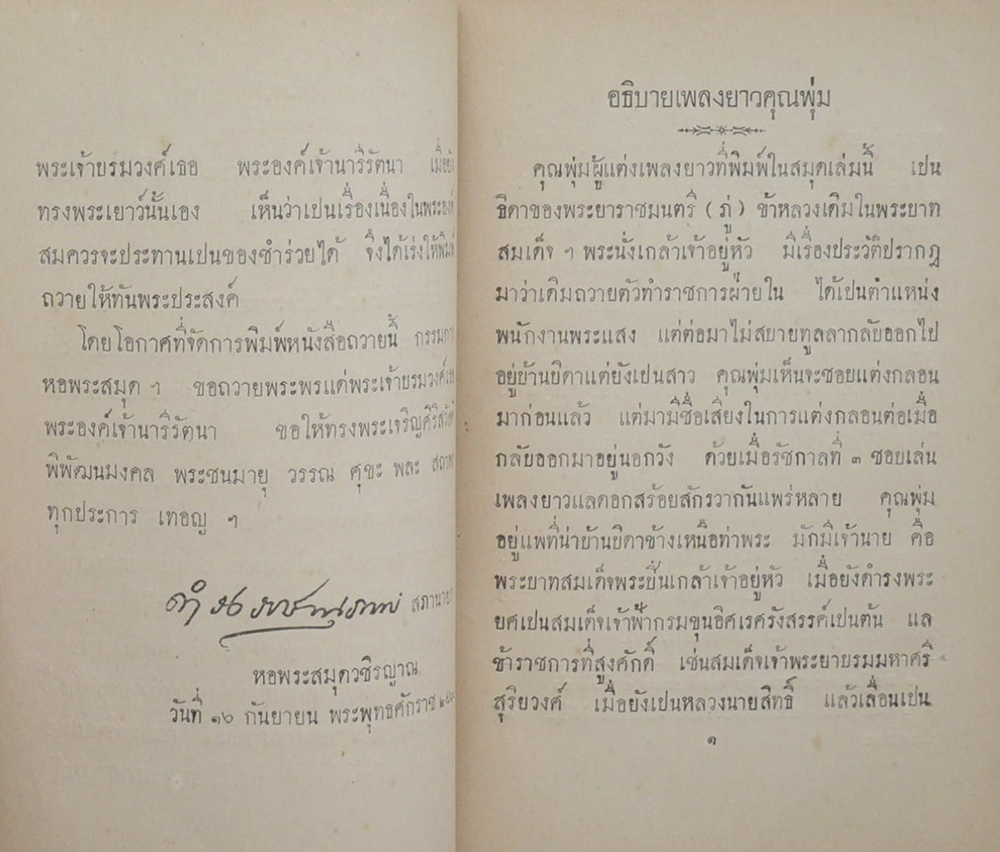 พระเจ้าบรมวงศ์เธอ พระองค์เจ้านารีรัตนา
ทรงพระเยาว์นั้นเอง เห็นว่าเปนเรื่องเนื่องในพระองค์
สมควรจะประทานเปนของชำร่วยได้ จึงได้เร่งให้พิมพ์
ถวายให้ทันพระประสงค์
โดยโอกาศที่จัดการพิมพ์หนังสือถวายนี้ กรรมการ
หอพระสมุด ฯ ขอถวายพระพรแด่พระเจ้าบรมวงศ์เธอ
พระองค์เจ้านารีรัตนา ขอให้ทรงพระเจริญศิริสวัสดิ์
พิพัฒนมงคล พระชนมายุ วรรณ ศุขะ พละ
ทุกประการ เทอญ ฯ
ดำรงราชานุภาพ สภานายก
หอพระสมุดวชิรญาณ
วันที่ ๑๖ กันยายน พระพุทธศักราช
อธิบายเพลงยาวคุณพุ่ม
คุณพุ่มผู้แต่งเพลงยาวที่พิมพ์ในสมุดเล่มนี้ เปน
ธิดาของพระยาราชมนตรี ( ภู่ ) ข้าหลวงเดิมในพระบาท
สมเด็จ ฯ พระนั่งเกล้าเจ้าอยู่หัว มีเรื่องประวัติปรากฎ
มาว่าเดิมถวายตัวทำราชการฝ่ายใน ได้เปนตำแหน่ง
พนักงานพระแสง แต่ต่อมาไม่สบายทูลลากลับออกไป
อยู่บ้านบิดาแต่ยังเปนสาว คุณพุ่มเห็นจะชอบแต่งกลอน
มาก่อนแล้ว แต่มามีชื่อเสียงในการแต่งกลอนต่อเมื่อ
กลับออกมาอยู่นอกวัง ด้วยเมื่อรัชกาลที่ ๓ ชอบเล่น
เพลงยาวแลดอกสร้อยสักรวากันแพร่หลาย คุณพุ่ม
อยู่แพที่น่าบ้านบิดาข้างเหนือท่าพระ มักมีเจ้านาย คือ
พระบาทสมเด็จพระปิ่นเกล้าเจ้าอยู่หัว เมื่อยังดำรงพระ
ยศเปนสมเด็จเจ้าฟ้ากรมขุนอิศเรศรังสรรค์เปนต้น แล
ข้าราชการที่สูงศักดิ์ เช่นสมเด็จเจ้าพระยาบรมมหาศรี
สุริยวงศ์ เมื่อยังเปนหลวงนายสิทธิ์ แล้วเลื่อนเปน
๑